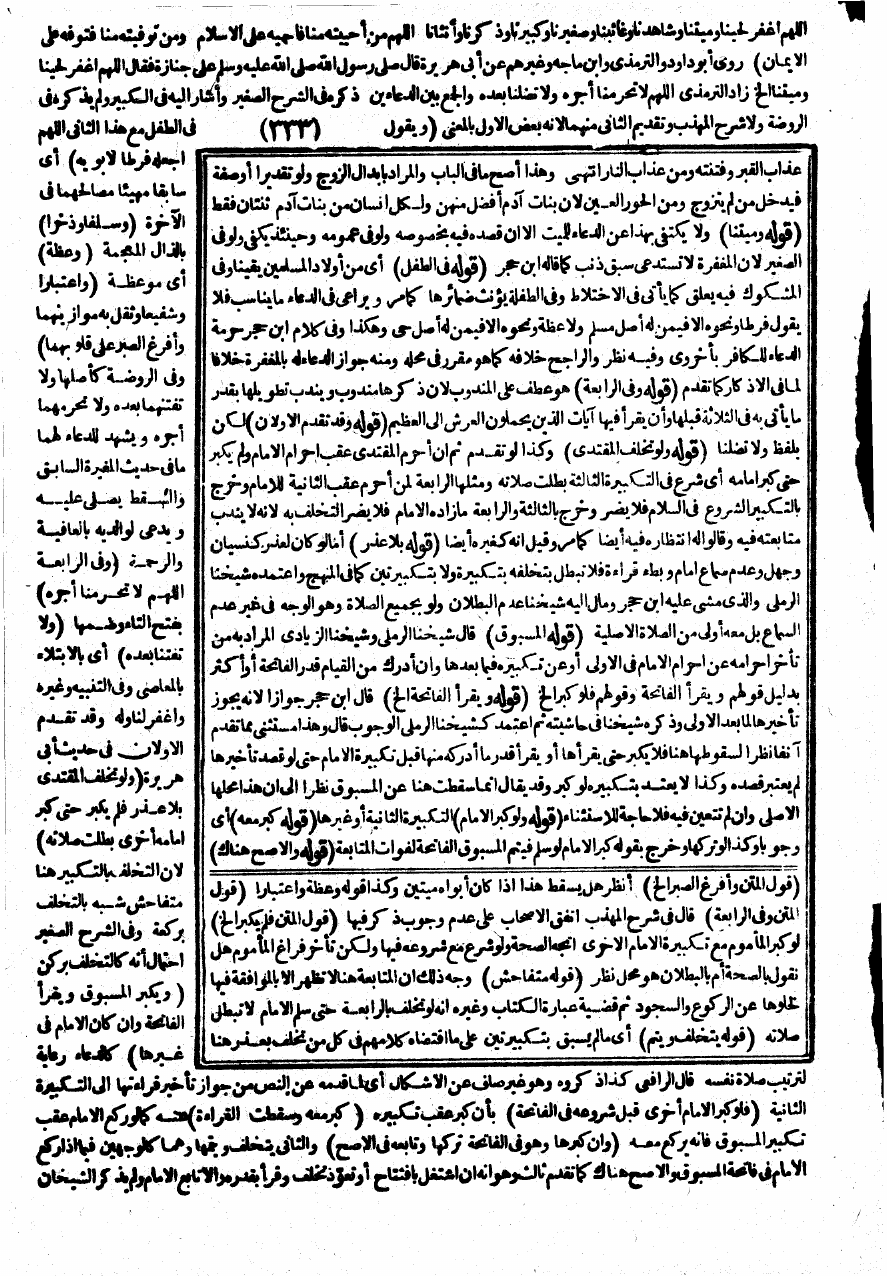 اللهم اغفر لحينا وميتنا وشاهدنا وغائبنا وصغيرنا وكبيرنا وذكرنا وأنثانا اللهم من أحييته منا فأحيه على الاسلام ومن توفيته منا فتوفه على
الايمان) روى أبو داود والترمذى وابن ماجه وغيرهم عن أبى هريرة قال صلى رسول الله صلى الله عليه وسلم على جنازة فقال اللهم اغفر لحينا
وميتنا الخ زاد الترمذى اللهم لا تحرمنا أجره ولا تضلنا بعده والجمع بين الدعاءين ذكره فى الشرح الصغير وأشار اليه فى الكبير ولم يذكره فى
الروضة ولا شرح المهذب وتقديم الثانى منهما لانه بعض الاول بالمعنى (ويقول (٣٣٣) فى الطفل مع هذا الثانى اللهم
اجعله فرطا لابويه) أى
سابقا مهيئا مصالحهما فى
الآخرة (وسلفا وذخرا)
بالذال المعجمة (وعظة)
أى موعظة (واعتبارا
وشفيعا وثقل به موازينهما
وأفرغ الصبر على قلوبهما)
وفى الروضة كأصلها ولا
تفتنهما بعده ولا تحرمهما
أجره ويشهد للدعاء لهما
ما فى حديث المغيرة السابق
والسقط يصلى عليه
ويدعى لوالديه بالعافية
والرحمة (وفى الرابعة
اللهم لا تحرمنا أجره)
بفتح التاء وضمها (ولا
تفتنا بعده) أى بالابتلاء
بالمعاصى وفى التنبيه وغيره
واغفر لنا وله وقد تقدم
الاولان فى حديث أبى
هريرة (ولو تخلف المقتدى
بلا عذر فلم يكبر حتى كبر
امامه أخرى بطلت صلاته)
لان التخلف بالتكبير هنا
متفاحش شبيه بالتخلف
بركعة وفى الشرح الصغير
احتمال أنه كالتخلف بركن
(ويكبر المسبوق ويقرأ
الفاتحة وان كان الامام فى
غيرها) كالدعاء رعاية
لترتيب صلاة نفسه قال الرافعى كذا ذكروه وهو غير صاف عن الاشكال أى لما قدمه عن النص من جواز تأخير قراءتها الى التكبيرة
الثانية (فلو كبر الامام أخرى قبل شروعه فى الفاتحة) بأن كبر عقب تكبيره (كبر معه وسقطت القراءة) عنه كما لو ركع الامام عقب
تكبير المسبوق فانه يركع معه (وان كبرها وهو فى الفاتحة تركها وتابعه فى الاصح) والثانى يتخلف ويتمها وهما كالوجهين فيما اذا ركع
الامام فى فاتحة المسبوق والاصح هناك كما تقدم ثالث وهو انه ان اشتغل بافتتاح أو تعوذ تخلف وقرأ بقدره والا تابع الامام ولم يذكر الشيخان
عذاب القبر وفتنته ومن عذاب النار انتهى وهذا أصح ما فى الباب والمراد بابدال الزوج ولو تقديرا أو صفة
فيدخل من لم يتزوج ومن الحور العين لان بنات آدم أفضل منهن ولكل انسان من بنات آدم ثنتان فقط
(قوله وميتنا) ولا يكتفى بهذا عن الدعاء للميت الا ان قصده فيه بخصوصه ولو فى عمومه وحينئذ يكفى ولو فى
الصغير لان المغفرة لا تستدعى سبق ذنب كما قاله ابن حجر (قوله فى الطفل) أى من أولاد المسلمين يقينا وفى
المشكوك فيه يعلق كما يأتى فى الاختلاط وفى الطفلة يؤنث ضمائرها كما مر ويراعى فى الدعاء ما يناسب فلا
يقول فرطا ونحوه الا فيمن له أصل مسلم ولا عظة ونحوه الا فيمن له أصل حى وهكذا وفى كلام ابن حجر حرمة
الدعاء للكافر بأخروى وفيه نظر والراجح خلافه كما هو مقرر فى محله ومنه جواز الدعاء له بالمغفرة خلافا
لما فى الاذكار كما تقدم (قوله وفى الرابعة) هو عطف على المندوب لان ذكرها مندوب ويندب تطويلها بقدر
ما يأتى به فى الثلاثة قبلها وأن يقرأ فيها آيات الذين يحملون العرش الى العظيم (قوله وقد تقدم الاولان) لكن
بلفظ ولا تضلنا (قوله ولو تخلف المقتدى) وكذا لو تقدم ثم ان أحرم المقتدى عقب احرام الامام ولم يكبر
حتى كبر امامه أى شرع فى التكبيرة الثالثة بطلت صلاته ومثلها الرابعة لمن أحرم عقب الثانية للامام وخرج
بالتكبير الشروع فى السلام فلا يضر وخرج بالثالثة والرابعة ما زاده الامام فلا يضر التخلف به لانه لا يندب
متابعته فيه وقالوا له انتظاره فيه أيضا كما مر وقيل انه كغيره أيضا (قوله بلا عذر) أما لو كان لعذر كنسيان
وجهل وعدم سماع امام وبطء قراءة فلا تبطل بتخلفه بتكبيرة ولا بتكبيرتين كما فى المنهج واعتمده شيخنا
الرملى والذى مشى عليه ابن حجر ومال اليه شيخنا عدم البطلان ولو بجميع الصلاة وهو الوجه فى غير عدم
السماع بل معه أولى من الصلاة الاصلية (قوله المسبوق) قال شيخنا الرملى وشيخنا الزيادى المراد به من
تأخر احرامه عن احرام الامام فى الاولى أو عن تكبيره فيما بعدها وان أدرك من القيام قدر الفاتحة أو أكثر
بدليل قولهم ويقرأ الفاتحة وقولهم فلو كبر الخ (قوله ويقرأ الفاتحة الخ) قال ابن حجر جوازا لانه يجوز
تأخيرها لما بعد الاولى وذكره شيخنا فى حاشيته ثم اعتمد كشيخنا الرملى الوجوب قال وهذا مستثنى مما تقدم
آنفا نظرا لسقوطها هنا فلا يكبر حتى يقرأها أو يقرأ قدر ما أدركه منها قبل تكبيرة الامام حتى لو قصد تأخيرها
لم يعتبر قصده وكذا لا يعتد بتكبيره لو كبر وقد يقال انما سقطت هنا عن المسبوق نظرا الى ان هذا محلها
الاصلى وان لم تتعين فيه فلا حاجة للاستثناء (قوله ولو كبر الامام) التكبيرة الثانية أو غيرها (قوله كبر معه) أى
وجوبا وكذا لو تركها وخرج بقوله كبر الامام لو سلم فيتم المسبوق الفاتحة لفوات المتابعة (قوله والاصح هناك)
(قول المتن وأفرغ الصبر الخ) أنظر هل يسقط هذا اذا كان أبواه ميتين وكذا قوله وعظة واعتبارا (قول
المتن وفى الرابعة) قال فى شرح المهذب اتفق الاصحاب على عدم وجوب ذكر فيها (قول المتن فلم يكبر الخ)
لو كبر المأموم مع تكبيرة الامام الاخرى اتجه الصحة ولو شرع مع شروعه فيها ولكن تأخر فراغ المأموم هل
نقول بالصحة أم بالبطلان هو محل نظر (قوله متفاحش) وجه ذلك ان المتابعة هنا لا تظهر الا بالموافقة فيها
لخلوها عن الركوع والسجود ثم قضية عبارة الكتاب وغيره انه لو تخلف بالرابعة حتى سلم الامام لا تبطل
صلاته (قوله يتخلف ويتم) أى ما لم يسبق بتكبيرتين على ما اقتضاه كلامهم فى كل من تخلف بعذر هنا